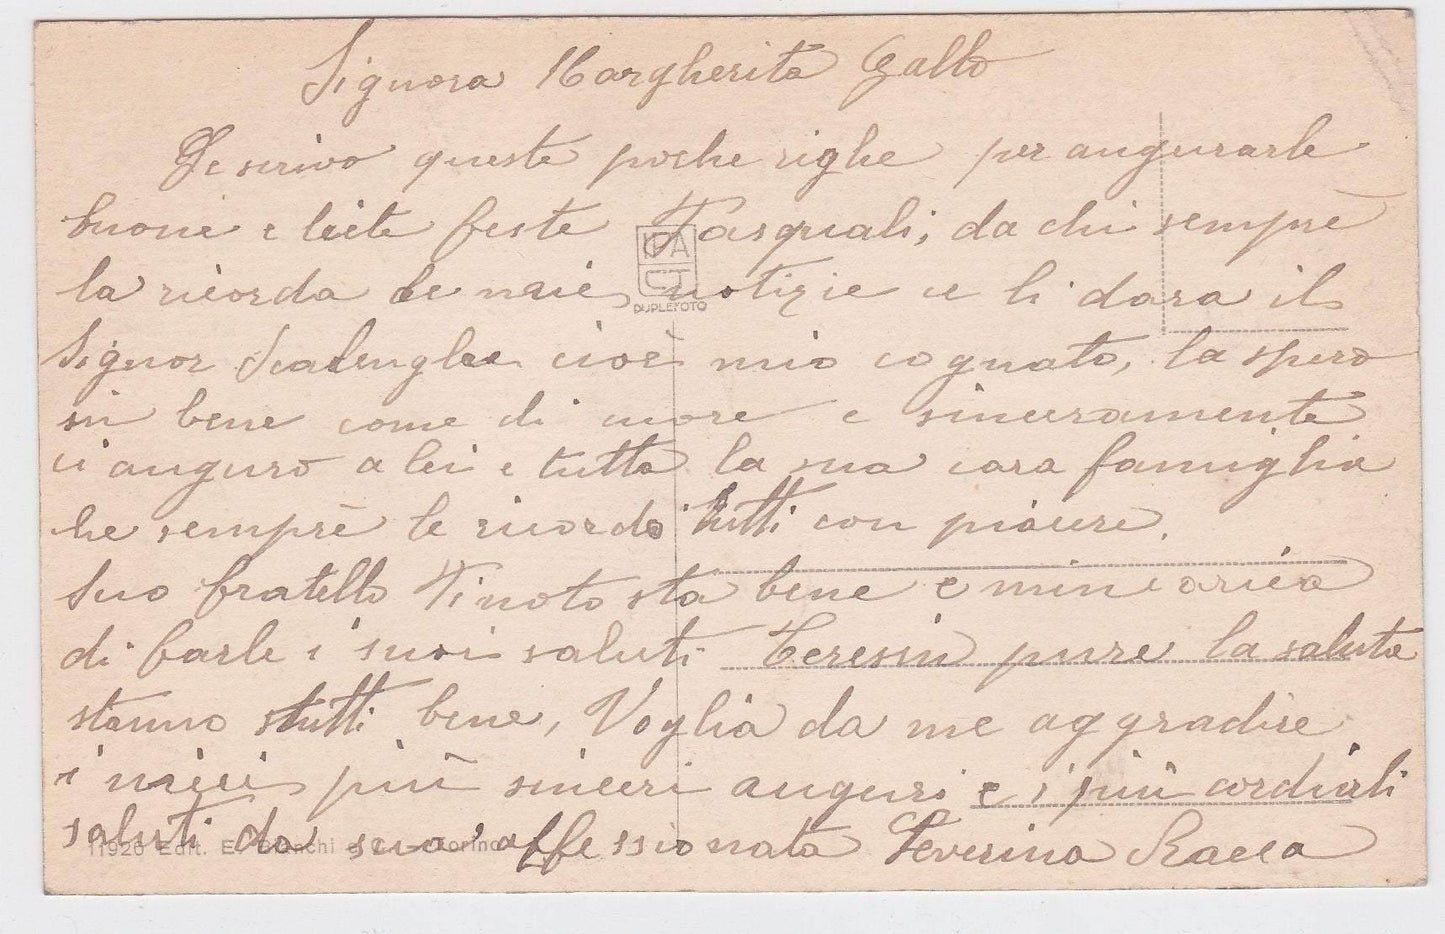 Signora Margherita Gallo
Le scrivo queste poche righe per augurarle
buone e liete feste Pasquali; da chi sempre
la ricorda le mie notizie ce li dara il
Signor Scalenghe cioè mio cognato, la spero
in bene come di cuore e sinceramente
ci auguro a lei e tutta la sua cara famiglia
che sempre le ricordo tutti con piacere.
Suo fratello Tinoto sta bene e mincarica
di farle i suoi saluti Teresin pure la saluta
stanno tutti bene, Voglia da me aggradire
i miei più sinceri auguri e i più cordiali
saluti da sua affessionata Severina Racca
IPA
CT
DUPLEFOTO
11926 Edit. E. Bianchi e C. - Torino